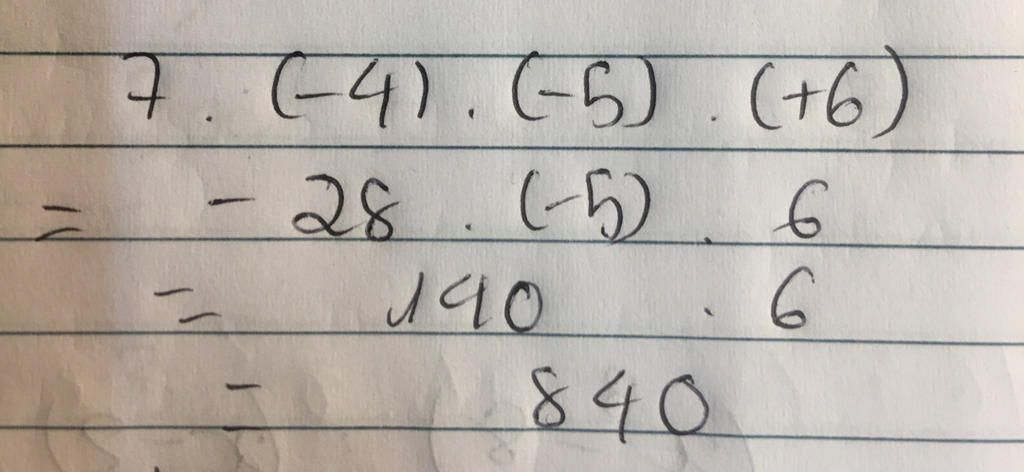 7 . (-4) . (-5) . (+6)
= - 28 . (-5) . 6
= 140 . 6
= 840